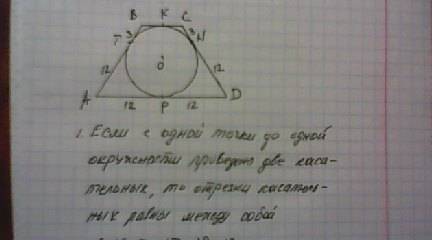 B K C
T 3 3 N
12 O 12
A 12 P 12 D
1. Если с одной точки до одной
окружности проведено две каса-
тельных, то отрезки касатель-
ных равны между собой